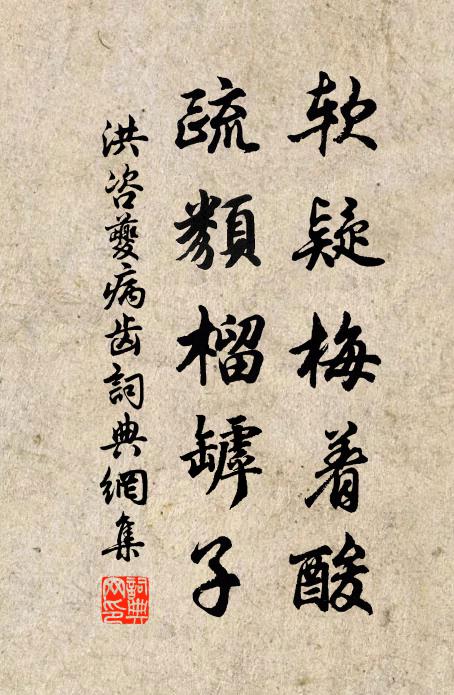 軟疑梅着酸
疏類榴罅子
洪咨夔病齿詞典網集
詞典
网印